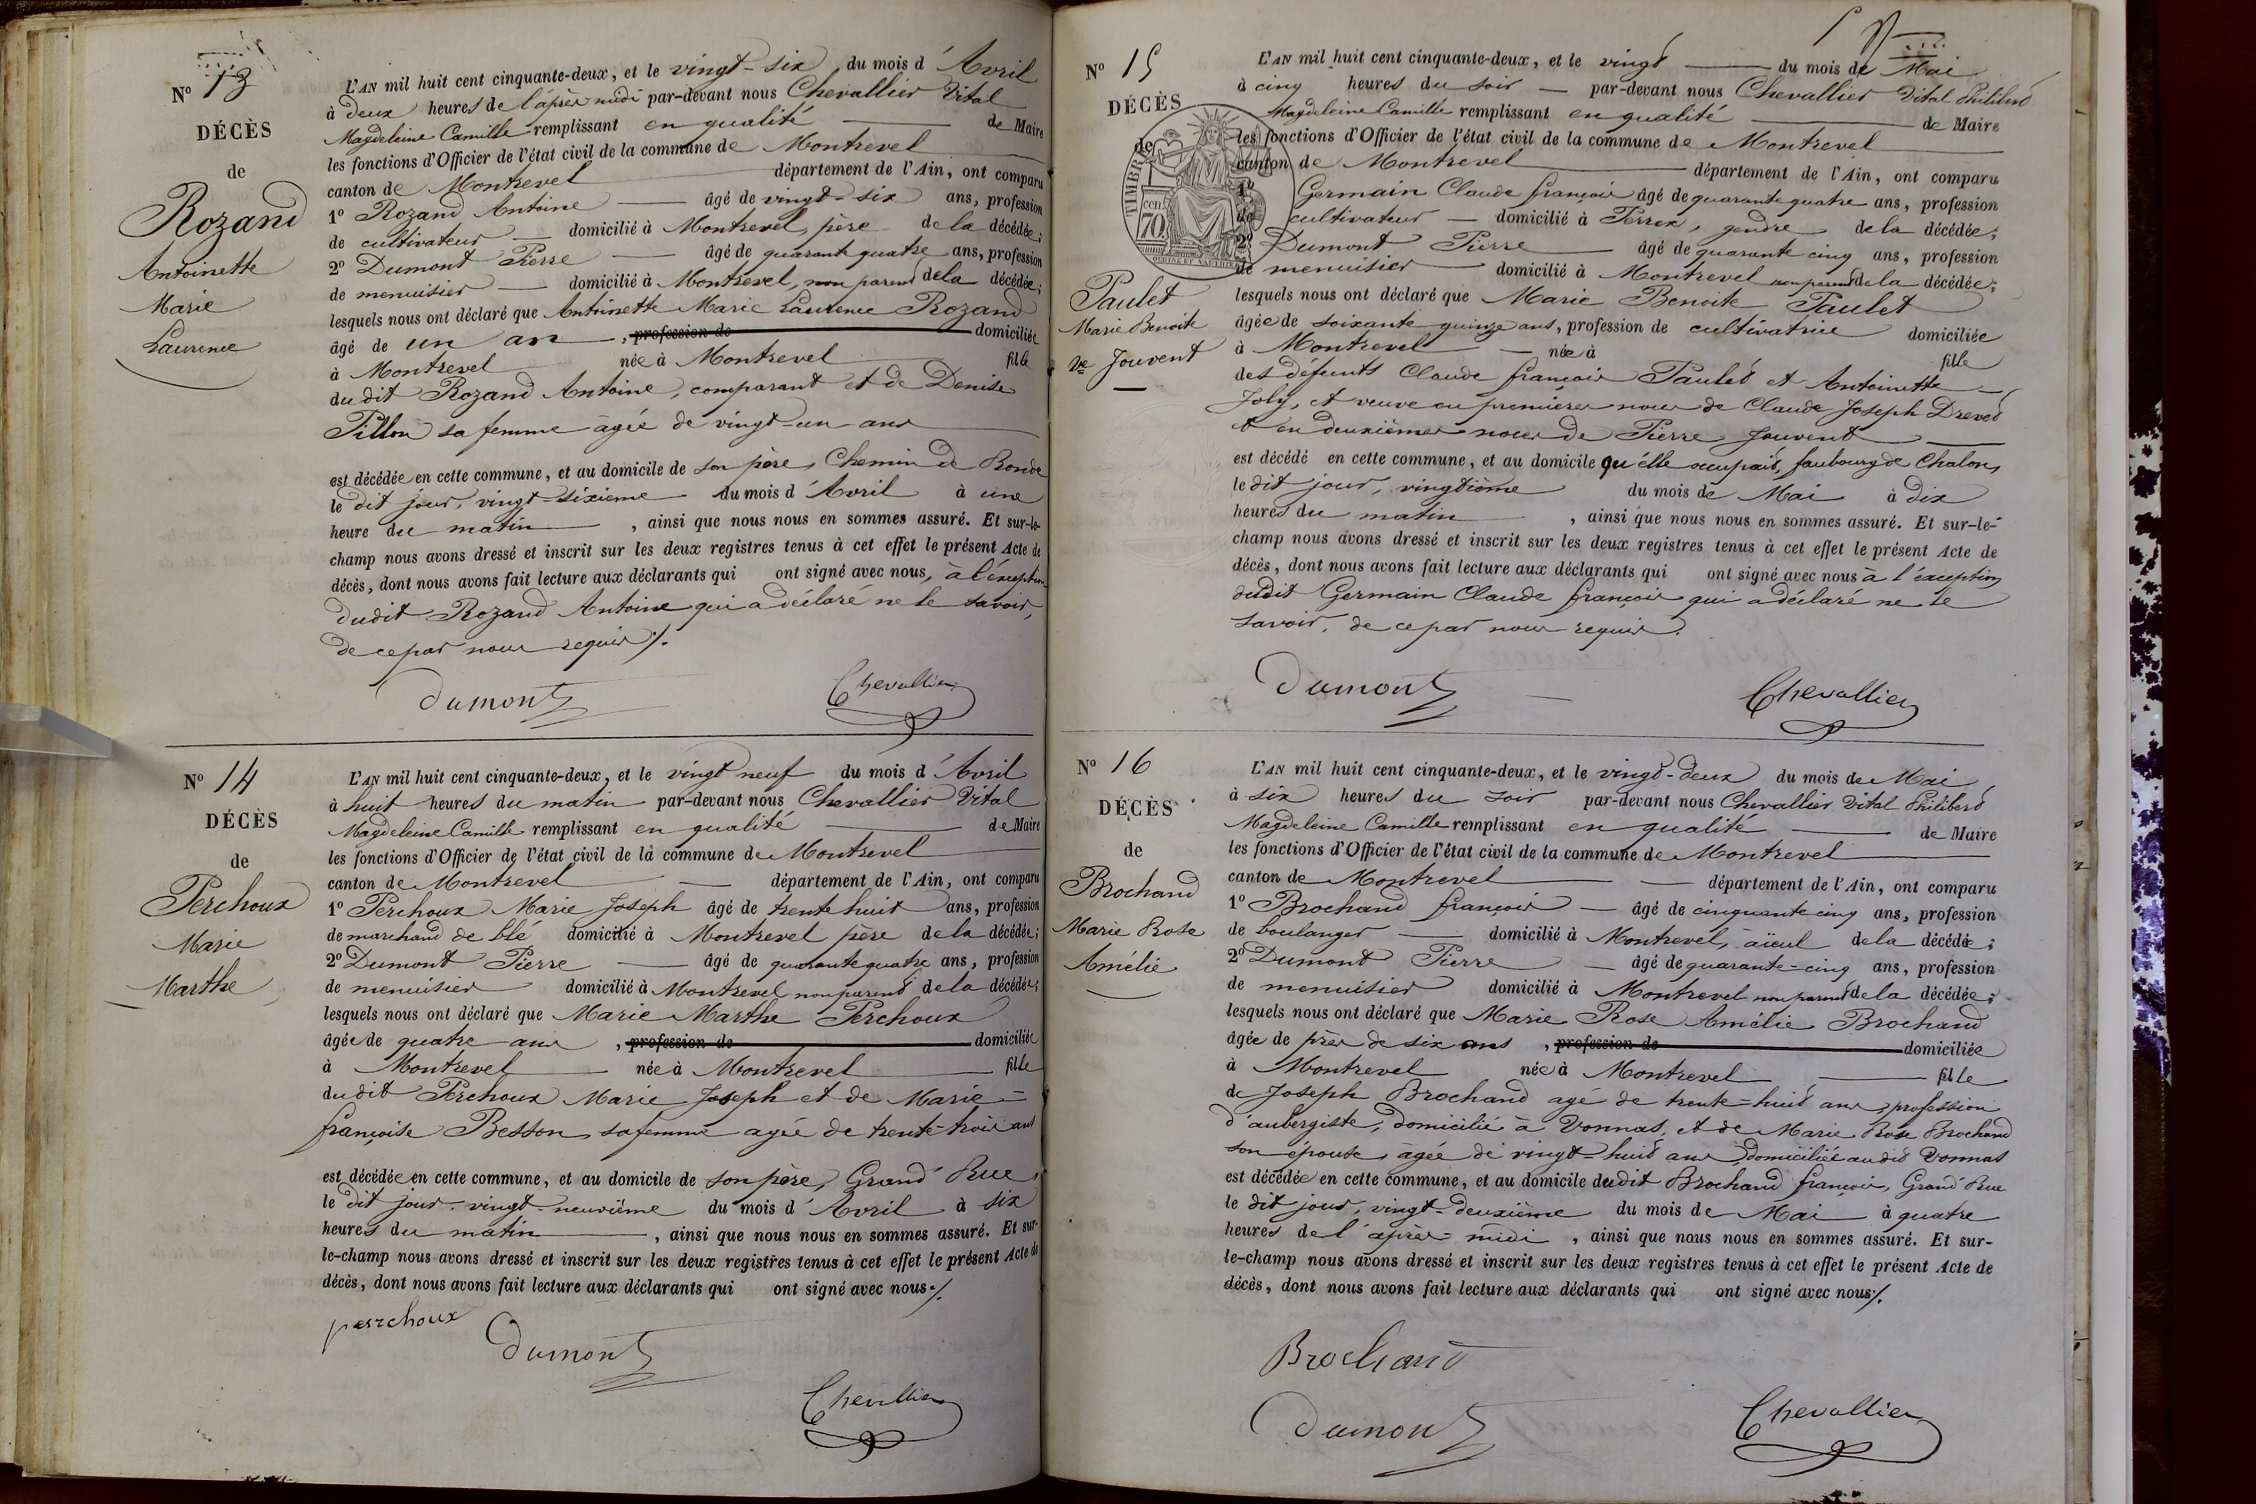 N° 13
DÉCÈS
de
Rozand
Antoinette
Marie
Laurence
L'AN mil huit cent cinquante-deux, et le vingt-six du mois d'Avril
à deux heures de l'après midi par-devant nous Chevallier Vital
Magdeleine Camille remplissant en qualité de Maire
les fonctions d'Officier de l'état civil de la commune de Montrevel
canton de Montrevel département de l'Ain, ont comparu
1° Rozand Antoine âgé de vingt-six ans, profession
de cultivateur domicilié à Montrevel, père de la décédée;
2° Dumont Pierre âgé de quarante quatre ans, profession
de menuisier domicilié à Montrevel, non parent de la décédée;
lesquels nous ont déclaré que Antoinette Marie Laurence Rozand
âgé de un an, profession de domiciliée
à Montrevel née à Montrevel fille
du dit Rozand Antoine, comparant et de Denise
Pillon sa femme âgée de vingt-un ans
est décédée en cette commune, et au domicile de son père, Chemin de Ronde
le dit jour, vingt-sixième du mois d'Avril à une
heure du matin, ainsi que nous nous en sommes assuré. Et sur-le-
champ nous avons dressé et inscrit sur les deux registres tenus à cet effet le présent Acte de
décès, dont nous avons fait lecture aux déclarants qui ont signé avec nous, à l'exception
dudit Rozand Antoine qui a déclaré ne le savoir,
de ce par nous requis ./.
Dumont Chevallier
N° 14
DÉCÈS
de
Perchoux
Marie
Marthe
L'AN mil huit cent cinquante-deux, et le vingt neuf du mois d'Avril
à huit heures du matin par-devant nous Chevallier Vital
Magdeleine Camille remplissant en qualité de Maire
les fonctions d'Officier de l'état civil de la commune de Montrevel
canton de Montrevel département de l'Ain, ont comparu
1° Perchoux Marie Joseph âgé de trente huit ans, profession
de marchand de blé domicilié à Montrevel père de la décédée;
2° Dumont Pierre âgé de quarante quatre ans, profession
de menuisier domicilié à Montrevel non parent de la décédée;
lesquels nous ont déclaré que Marie Marthe Perchoux
âgée de quatre ans, profession de domiciliée
à Montrevel née à Montrevel fille
du dit Perchoux Marie Joseph et de Marie-
françoise Besson sa femme agée de trente-trois ans
est décédée en cette commune, et au domicile de son père, Grand'Rue,
le dit jour vingt-neuvième du mois d'Avril à six
heures du matin, ainsi que nous nous en sommes assuré. Et sur-
le-champ nous avons dressé et inscrit sur les deux registres tenus à cet effet le présent Acte de
décès, dont nous avons fait lecture aux déclarants qui ont signé avec nous ./.
perchoux
Dumont
Chevallier
N° 15
DÉCÈS
de
TIMBRE
70 cen
Paulet
Marie Benoite
Ve Jouvent
L'AN mil huit cent cinquante-deux, et le vingt du mois de Mai
à cinq heures du soir par-devant nous Chevallier Vital Philibert
Magdeleine Camille remplissant en qualité de Maire
les fonctions d'Officier de l'état civil de la commune de Montrevel
canton de Montrevel département de l'Ain, ont comparu
1° Germain Claude françois âgé de quarante quatre ans, profession
de cultivateur domicilié à Perrex, gendre de la décédée;
2° Dumont Pierre âgé de quarante cinq ans, profession
de menuisier domicilié à Montrevel non parent de la décédée;
lesquels nous ont déclaré que Marie Benoite Paulet
âgée de soixante quinze ans, profession de cultivatrice domiciliée
à Montrevel née à fille
des défunts Claude françois Paulet et Antoinette
Joly, et veuve en premières noces de Claude Joseph Drevet
et en deuxièmes noces de Pierre Jouvent
est décédé en cette commune, et au domicile qu'elle occupait, faubourg de Chalon,
le dit jour, vingtième du mois de Mai à dix
heures du matin, ainsi que nous nous en sommes assuré. Et sur-le-
champ nous avons dressé et inscrit sur les deux registres tenus à cet effet le présent Acte de
décès, dont nous avons fait lecture aux déclarants qui ont signé avec nous à l'exception
dudit Germain Claude françois qui a déclaré ne le
savoir, de ce par nous requis.
Dumont Chevallier
N° 16
DÉCÈS
de
Brochand
Marie Rose
Amélie
L'AN mil huit cent cinquante-deux, et le vingt-deux du mois de Mai
à six heures du soir par-devant nous Chevallier Vital Philibert
Magdeleine Camille remplissant en qualité de Maire
les fonctions d'Officier de l'état civil de la commune de Montrevel
canton de Montrevel département de l'Ain, ont comparu
1° Brochand françois âgé de cinquante cinq ans, profession
de boulanger domicilié à Montrevel, aïeul de la décédée;
2° Dumont Pierre âgé de quarante-cinq ans, profession
de menuisier domicilié à Montrevel non parent de la décédée;
lesquels nous ont déclaré que Marie Rose Amélie Brochand
âgée de près de six ans, profession de domiciliée
à Montrevel née à Montrevel fille
de Joseph Brochand agé de trente-huit ans, profession
d'aubergiste, domicilié à Vonnas, et de Marie Rose Brochand
son épouse, agée de vingt-huit ans, domiciliée au dit Vonnas
est décédée en cette commune, et au domicile dudit Brochand françois, Grand'Rue
le dit jour, vingt-deuxième du mois de Mai à quatre
heures de l'après-midi, ainsi que nous nous en sommes assuré. Et sur-
le-champ nous avons dressé et inscrit sur les deux registres tenus à cet effet le présent Acte de
décès, dont nous avons fait lecture aux déclarants qui ont signé avec nous ./.
Brochand
Dumont Chevallier